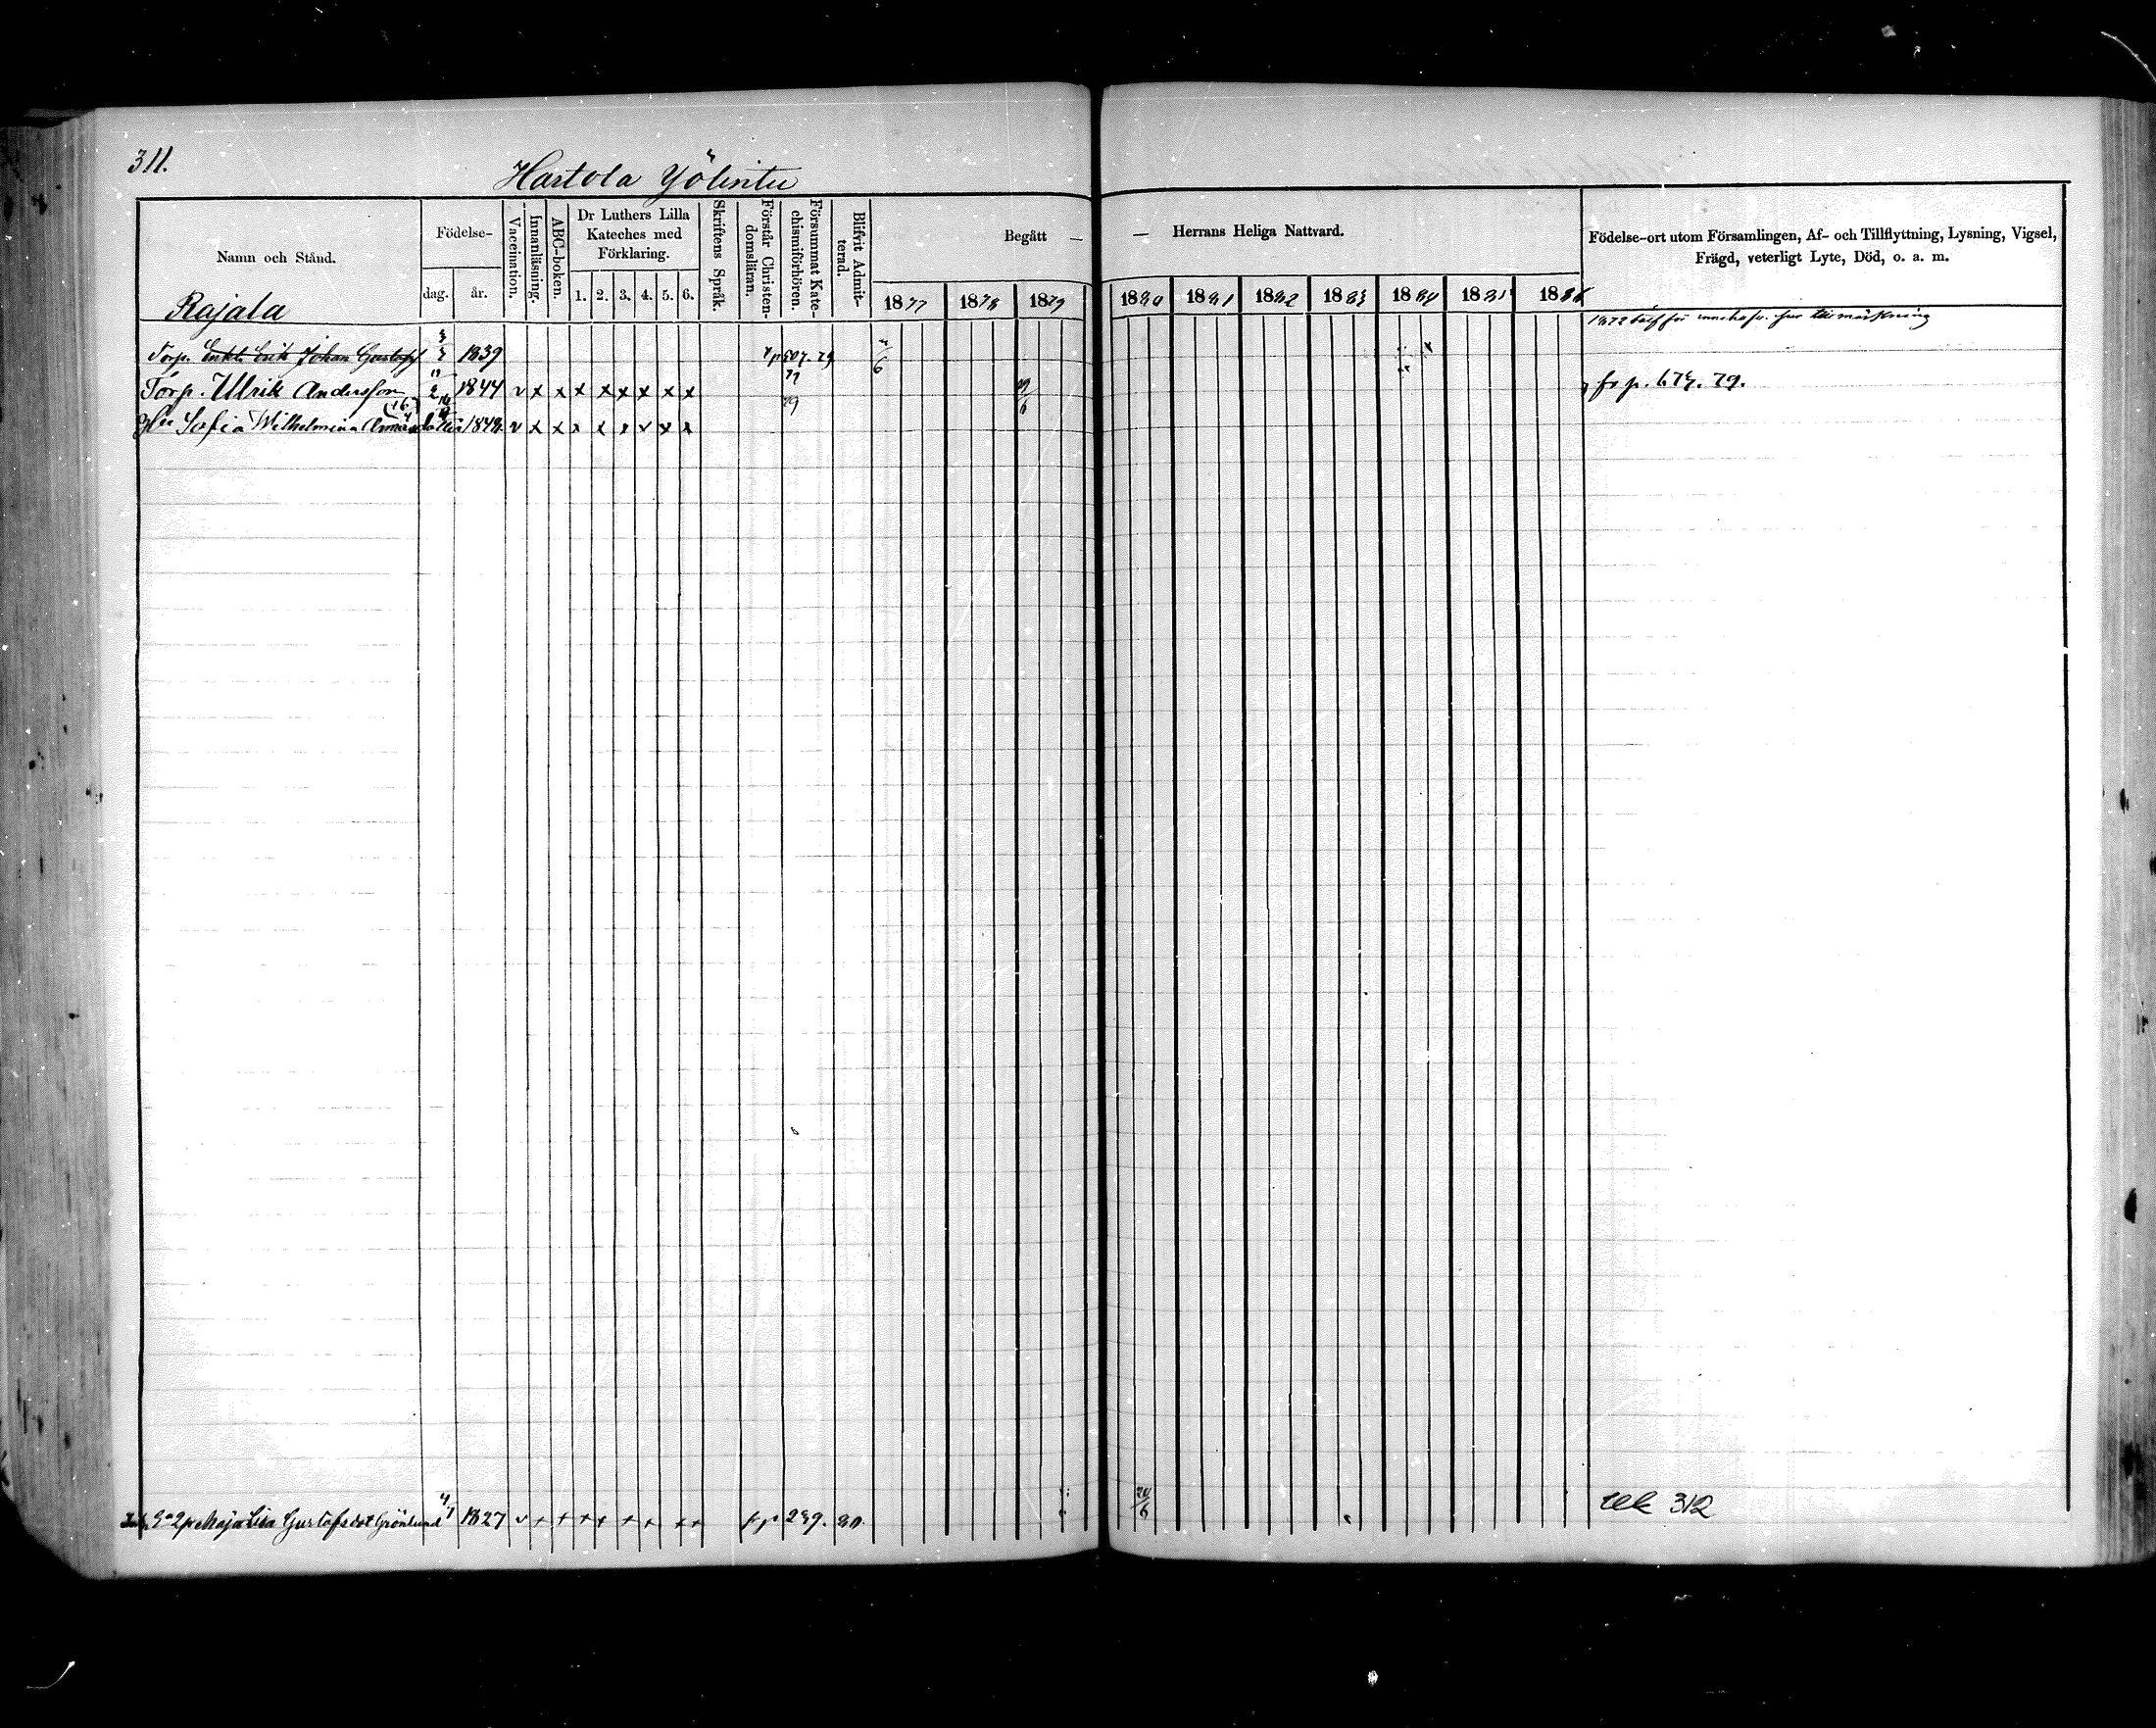 311.
Hartola Yölintu
Namn och Stånd.
Födelse-
dag.
år.
Vaccination.
Innanläsning.
ABC-boken.
Dr Luthers Lilla
Kateches med
Förklaring.
1. 2. 3. 4. 5. 6.
Skriftens Språk.
Förstår Christen-
domsläran.
Försummat Kate-
chismiförhören.
Blifvit Admit-
terad.
Begått —
— Herrans Heliga Nattvard.
1877 1878 1879 1880 1881 1882 1883 1884 1885 1886
Födelse-ort utom Församlingen, Af- och Tillflyttning, Lysning, Vigsel,
Frägd, veterligt Lyte, Död, o. a. m.
Rajala
Torp. Johan Gustafsf 1839
Torp. Ulrik Andersson 1844 v x x x x x x x x fr p. 679. 79.
Hu Sofia Wilhelmina v x x x x x v x x
Maja Lisa Gustafsdot Grönlund 4/1 1827 v x x x x x x x x fr p 239. 80. 20/6 312